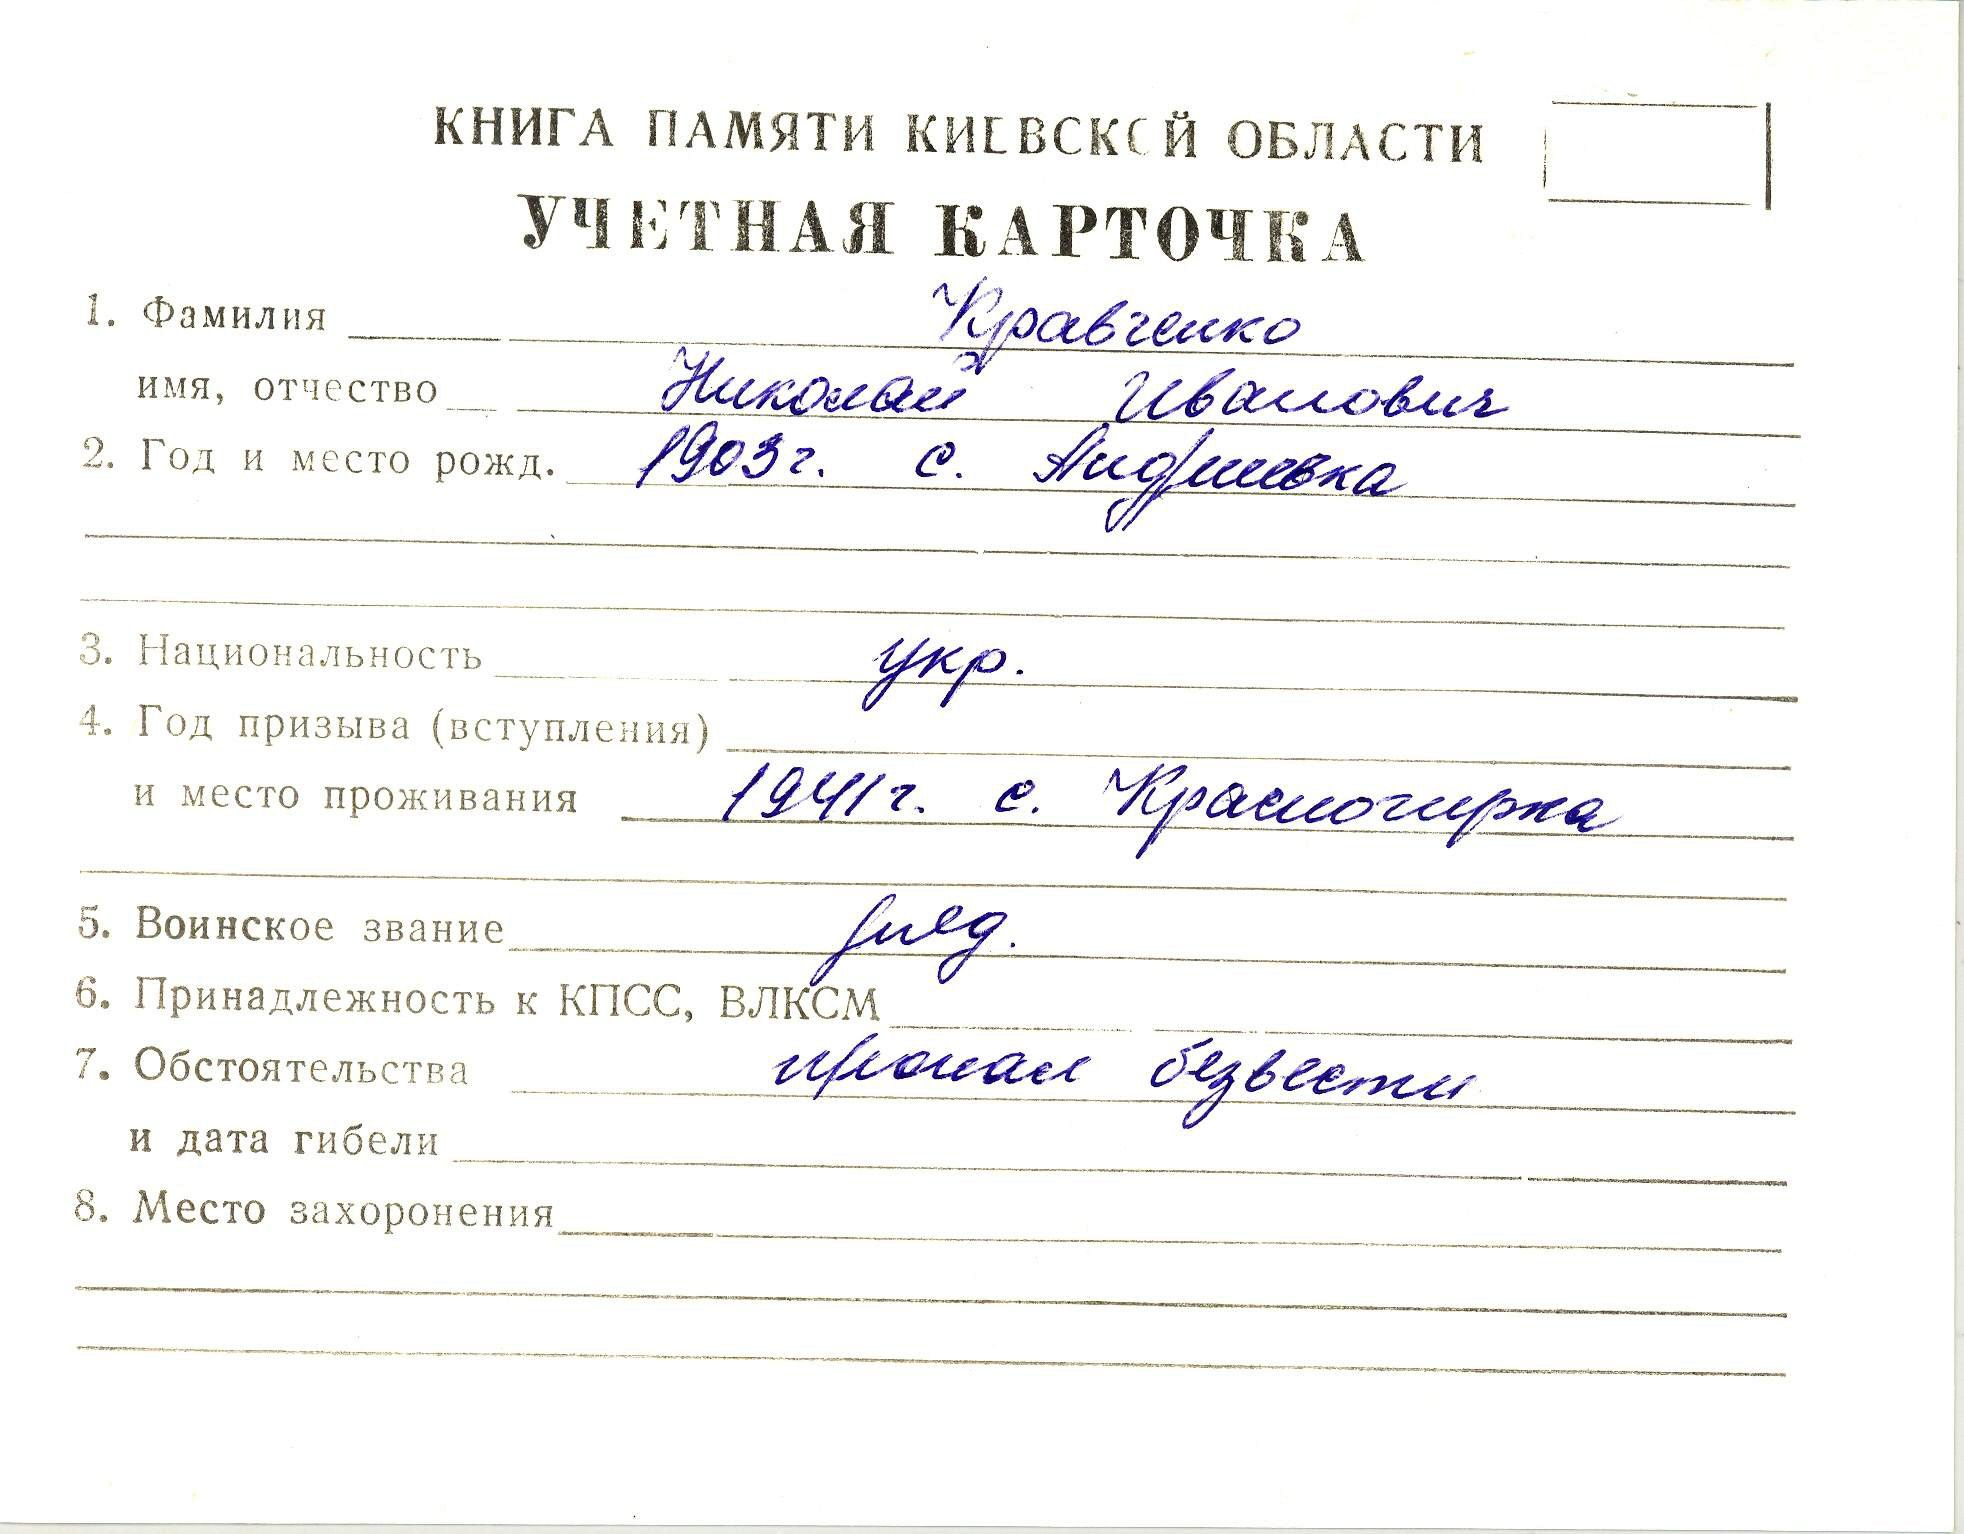 КНИГА ПАМЯТИ КИЕВСКОЙ ОБЛАСТИ
УЧЕТНАЯ КАРТОЧКА
1. Фамилия Кравченко
имя, отчество Николай Иванович
2. Год и место рожд. 1903 г. с. Андреевка
3. Национальность укр.
4. Год призыва (вступления)
и место проживания 1941 г. с.
5. Воинское звание ряд.
6. Принадлежность к КПСС, ВЛКСМ
7. Обстоятельства пропал безвести
и дата гибели
8. Место захоронения